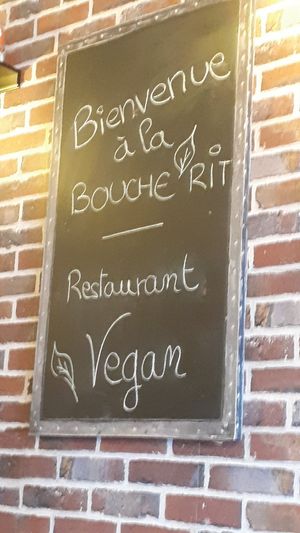 Bienvenue
à la
BOUCHE RIT
Restaurant
Vegan